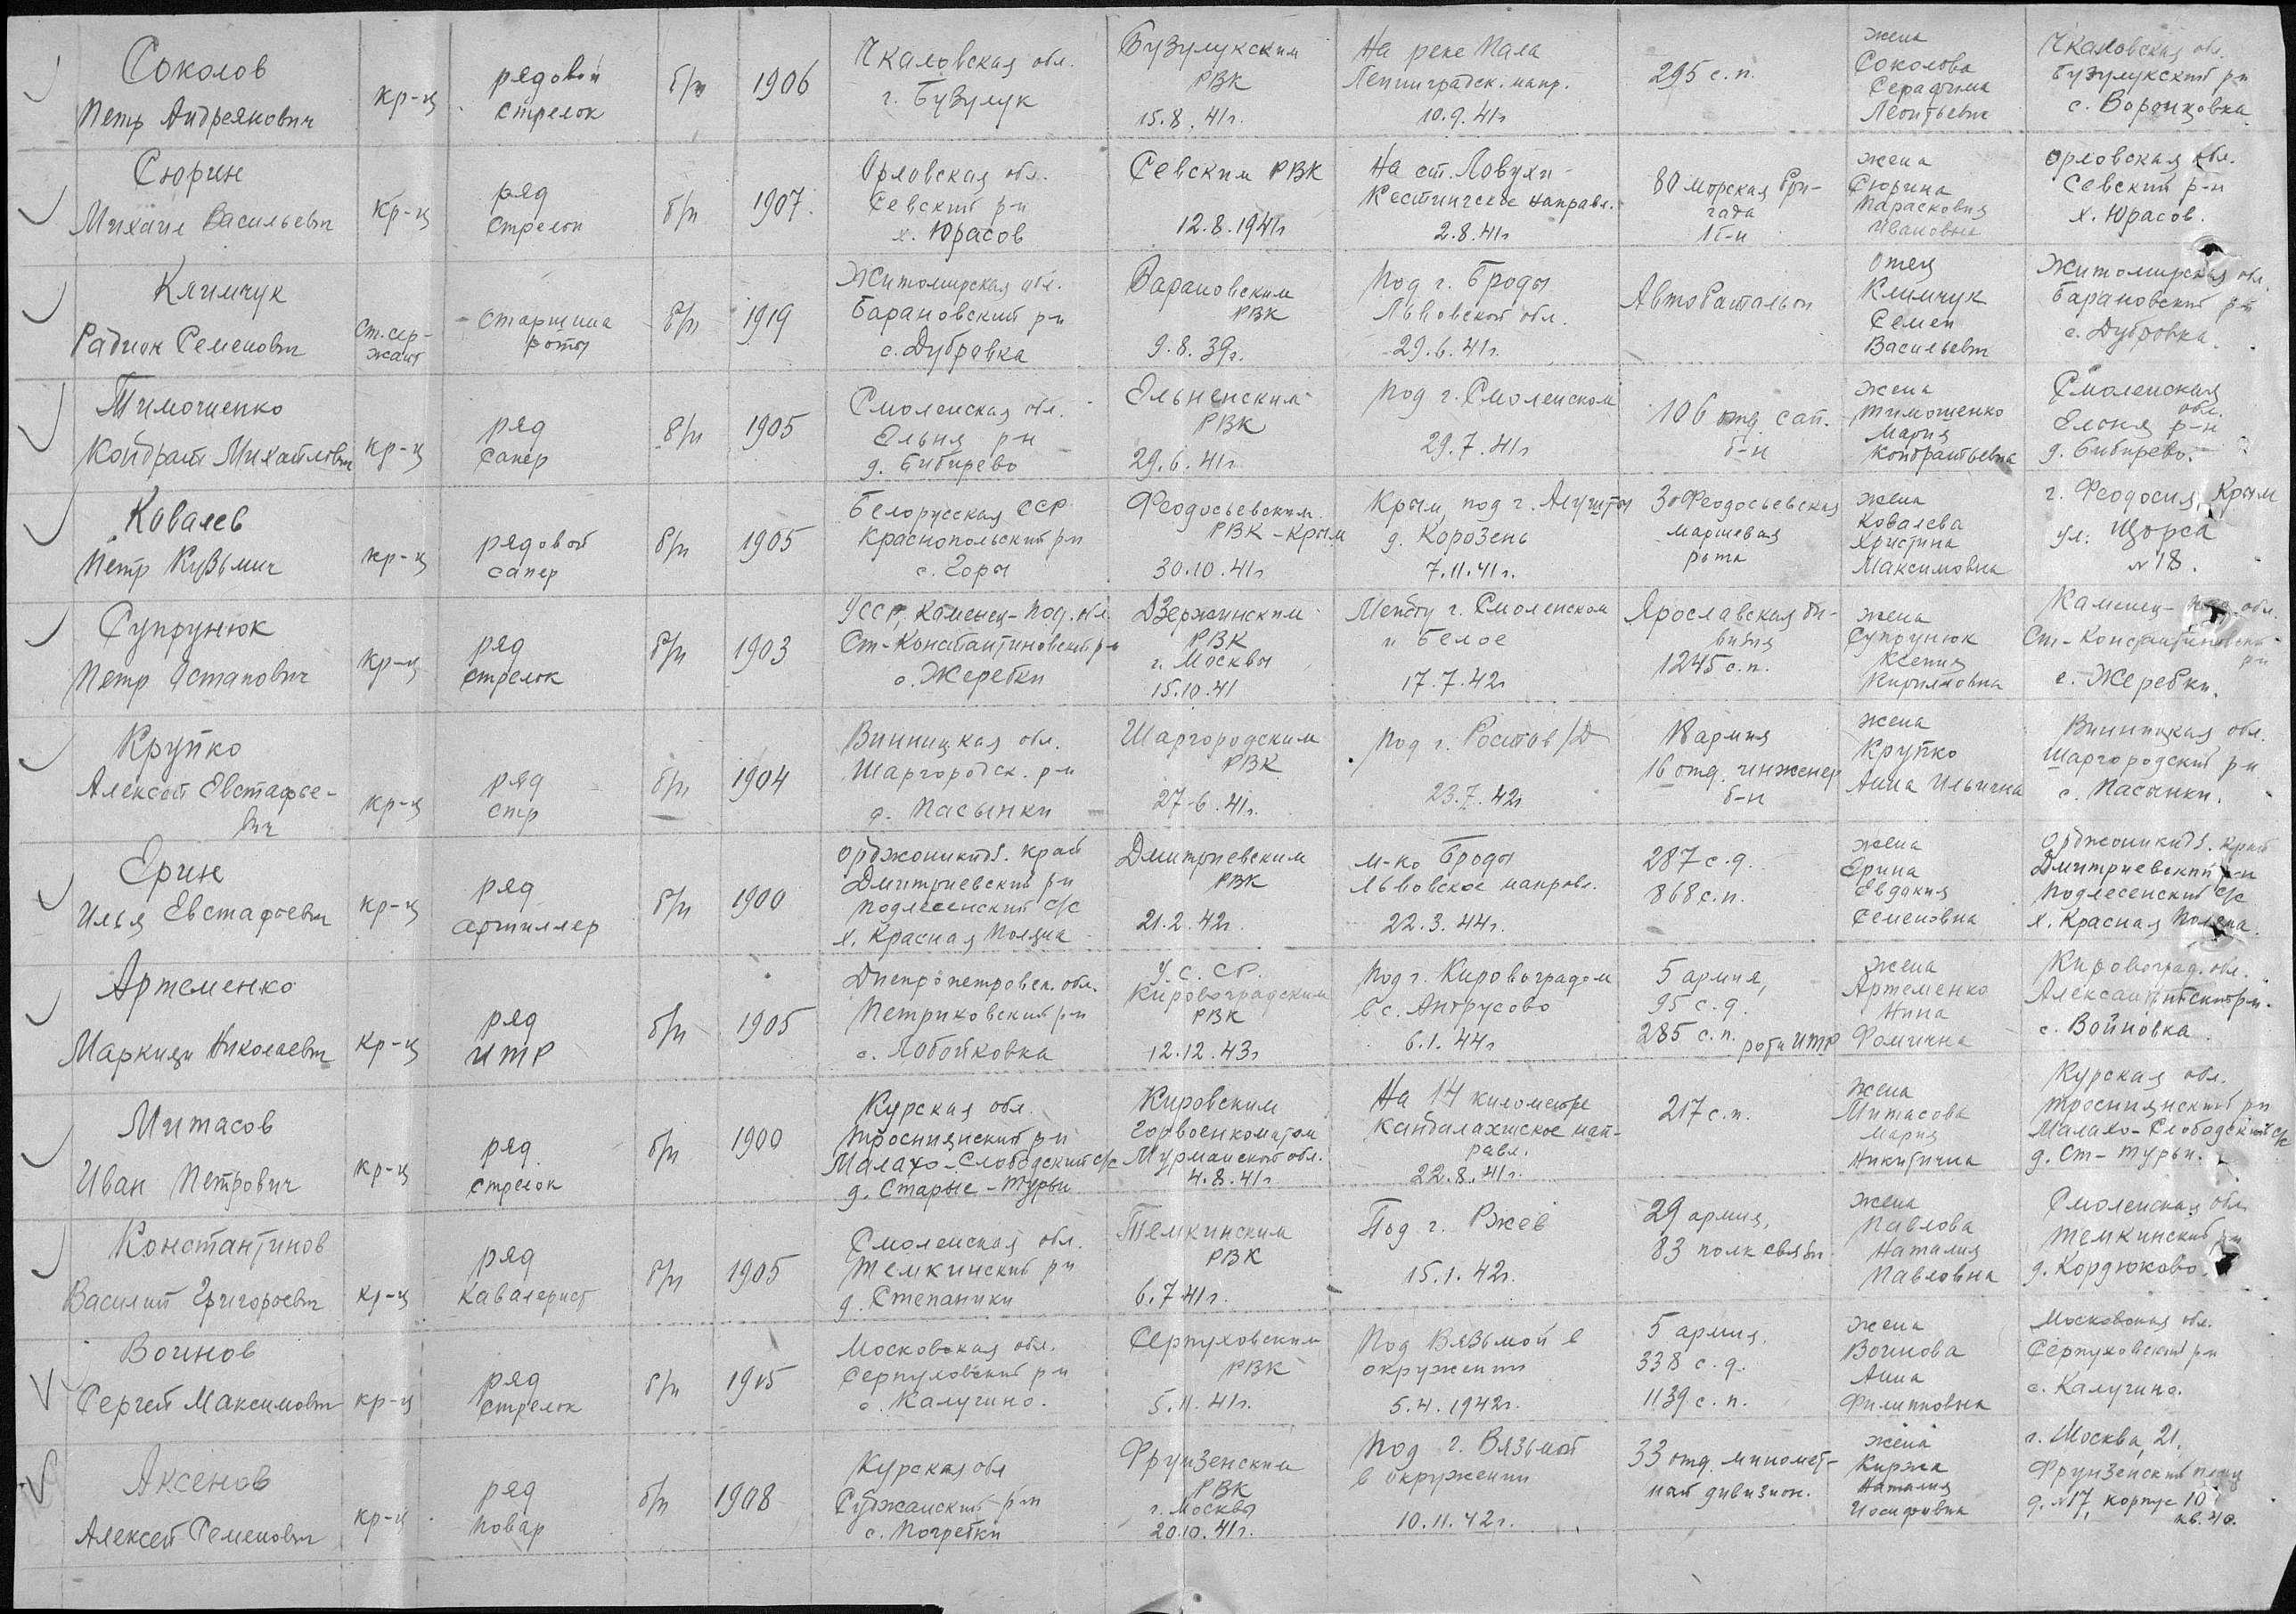 Соколов
Петр Андреянович
кр-ц
рядовой
стрелок
б/п
1906
Чкаловская обл.
г. Бузулук
Бузулукским
РВК
15.8.41г.
На реке Мала
Ленинградск. напр.
10.9.41г
295 с.п.
жена
Соколова
Серафима
Леонтьевна
Чкаловская обл.
Бузулукский р-н
с. Воронцовка
Сюрин
Михаил Васильевич
кр-ц
ряд
стрелок
б/п
1907
Орловская обл.
Севский р-н
х. Юрасов
Севским РВК
12.8.1941г
На ст. Ловухи
Кестингское направл.
2.8.41г
80 морская бри-
гада
1б-н
жена
Сюрина
Парасковия
Ивановна
Орловская обл.
Севский р-н
х. Юрасов.
Климчук
Радион Семенович
Ст. сер-
жант
старшина
роты
б/п
1919
Житомирская обл.
Барановский р-н
с. Дубровка
Барановским
РВК
9.8.39г.
Под г. Броды
Львовской обл.
29.6.41г.
Автобатальон
отец
Климчук
Семен
Васильевич
Житомирская обл.
Барановский р-н
с. Дубровка.
Тимошенко
Кондрат Михайлович
кр-ц
ряд
сапер
б/п
1905
Смоленская обл.
Ельня р-н
д. Бибирево
Ельненским
РВК
29.6.41г
Под г. Смоленском
29.7.41г
106 отд. сап.
б-н
жена
Тимошенко
Мария
Кондратьевна
Смоленская
обл.
Ельня р-н
д. Бибирево.
Ковалев
Петр Кузьмич
кр-ц
рядовой
сапер
б/п
1905
Белорусская ССР
Краснопольский р-н
с. Горы
Феодосьевским
РВК - Крым
30.10.41г
Крым, под г. Алушты
д. Корозень
7.11.41г.
3о Феодосьевская
маршевая
рота
жена
Ковалева
Христина
Максимовна
г. Феодосия, Крым
ул. Щорса
№ 18.
Супрунюк
Петр Остапович
кр-ц
ряд
стрелок
б/п
1903
УССР, Каменец-Под. обл.
Ст-Константиновский р-н
с. Жеребки
Дзержинским
РВК
г. Москвы
15.10.41
Между г. Смоленском
и Белое
17.7.42г
Ярославская ди-
визия
1245 с.п.
жена
Супрунюк
Ксения
Кириловна
Каменец-Под. обл.
Ст-Константиновский
р-н
с. Жеребки.
Крупко
Алексей Евстафье-
вич
кр-ц
ряд
стр
б/п
1904
Винницкая обл.
Шаргородск. р-н
с. Пасынки
Шаргородским
РВК
27.6.41г.
Под г. Ростов/Д
23.7.42г
18 армия
16 отд. инженер
б-н
жена
Крупко
Анна Ильична
Винницкая обл.
Шаргородский р-н
с. Пасынки.
Ерин
Илья Евстафьевич
кр-ц
ряд
артиллер
б/п
1900
Орджоникидз. край
Дмитриевский р-н
Подлесенский с/с
х. Красная Поляна
Дмитриевским
РВК
21.2.42г.
м-ко Броды
Львовское направл.
22.3.44г.
287 с.д.
868 с.п.
жена
Ерина
Евдакия
Семеновна
Орджоникидз. край
Дмитриевский р-н
Подлесенский с/с
х. Красная Поляна.
Артеменко
Маркиян Николаевич
кр-ц
ряд
ИТР
б/п
1905
Днепропетровск. обл.
Петриковский р-н
с. Лобойковка
У.С.СР.
Кировоградским
РВК
12.12.43г
Под г. Кировоградом
в с. Андрусово
6.1.44г
5 армия,
95 с.д.
285 с.п. рота ИТР
жена
Артеменко
Нина
Фомична
Кировоград. обл.
с. Войновка
Митасов
Иван Петрович
кр-ц
ряд.
стрелок
б/п
1900
Курская обл.
Троснянский р-н
Малахо-Слободский с/с
д. Старые-Турьи
Кировским
Горвоенкоматом
Мурманской обл.
4.8.41г
На 14 километре
Кандалахшское нап-
равл.
22.8.41г.
217 с.п.
жена
Митасова
Мария
Никитична
Курская обл.
Троснянский р-н
Малахо-Слободский с/с
д. Ст-Турьи.
Константинов
Василий Григорьевич
кр-ц
ряд
кавалерист
б/п
1905
Смоленская обл.
Темкинский р-н
д. Степаники
Темкинским
РВК
6.7.41г.
Под г. Ржев
15.1.42г.
29 армия,
83 полк связи.
жена
Павлова
Наталия
Павловна
Смоленская обл
Темкинский р-н
д. Кордюково.
Воинов
Сергей Максимович
кр-ц
ряд
стрелок
б/п
1915
Московская обл.
Серпуховский р-н
с. Калугино.
Серпуховским
РВК
5.11.41г.
Под Вязьмой в
окружении
5.4.1942г.
5 армия.
338 с.д.
1139 с.п.
жена
Воинова
Анна
Филипповна
Московская обл.
Серпуховский р-н
с. Калугино.
Аксенов
Алексей Семенович
кр-ц
ряд
повар
б/п
1908
Курская обл
Суджанский р-н
с. Погребки
Фрунзенским
РВК
г. Москва
20.10.41г.
Под г. Вязьмой
в окружении
10.11.42г.
33 отд. миномет-
ный дивизион.
жена
Наталия
Иосифовна
г. Москва, 21.
Фрунзенский
д. №17, корпус 10
кв. 40.